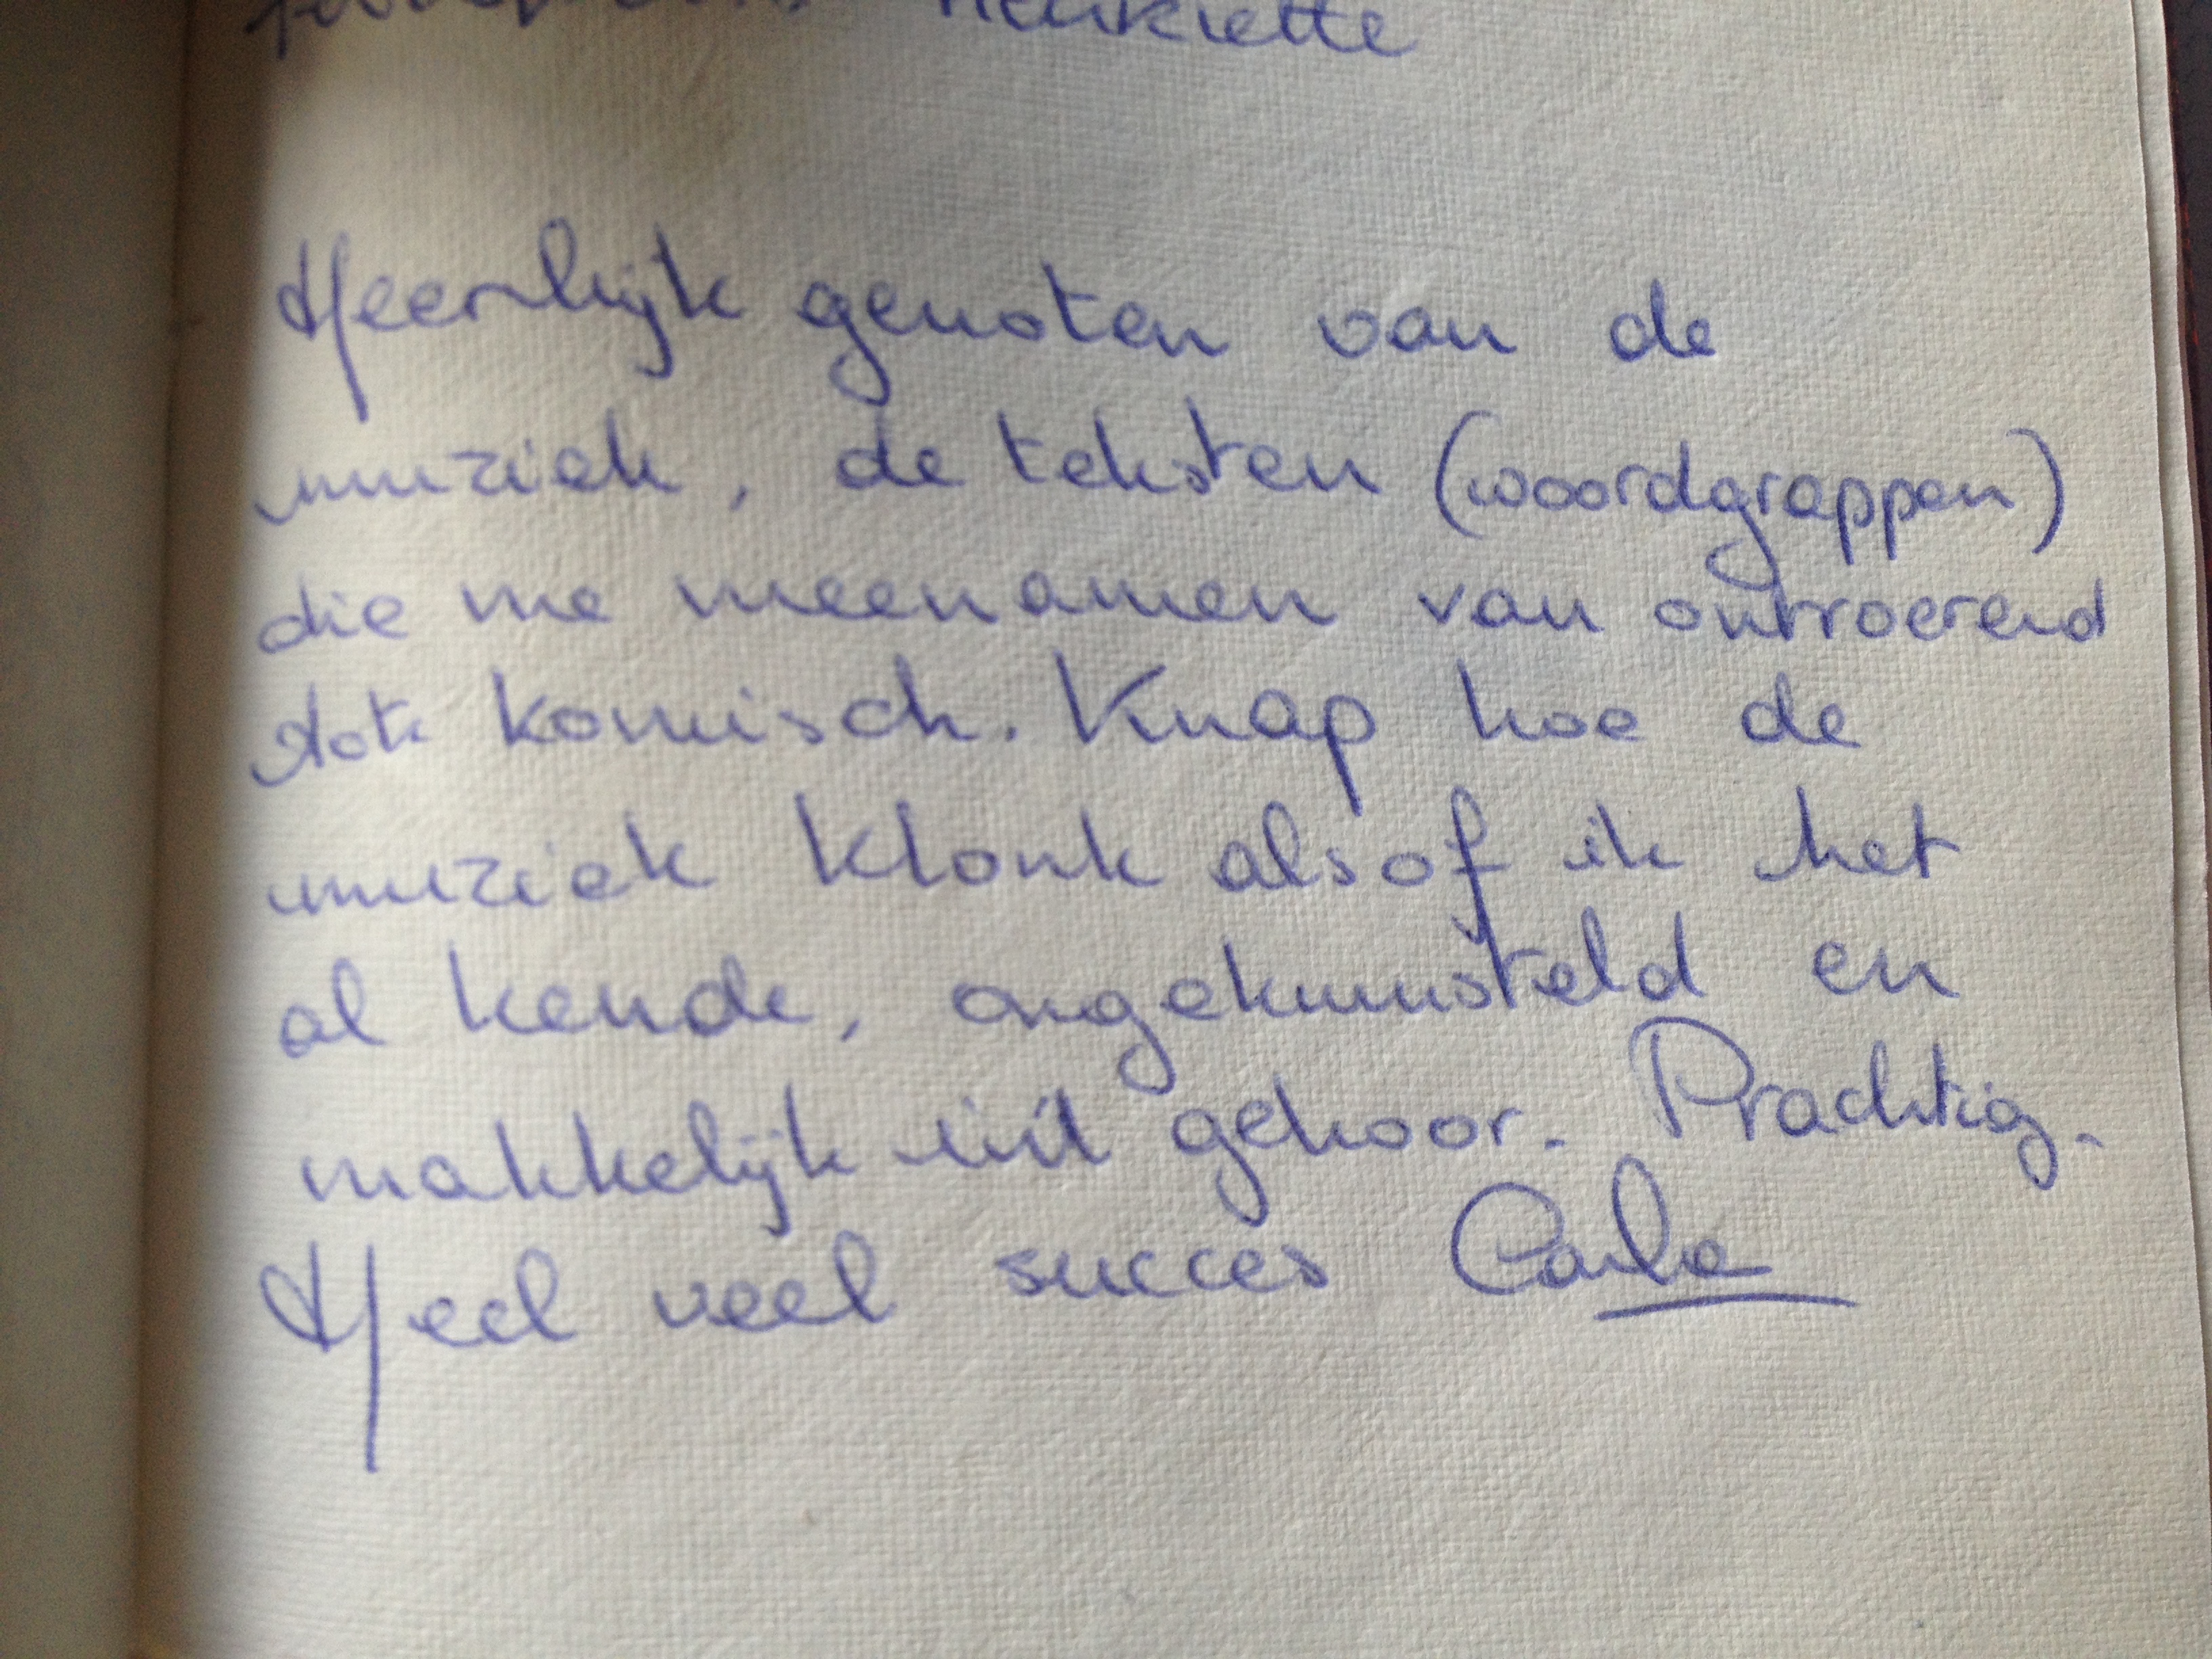 Henriette
Heerlijk genoten van de
muziek, de teksten (woordgrappen)
die me meenamen van ontroerend
tot komisch. Knap hoe de
muziek klonk alsof ik het
al kende, ongekunsteld en
makkelijk in't gehoor. Prachtig.
Heel veel succes Carla